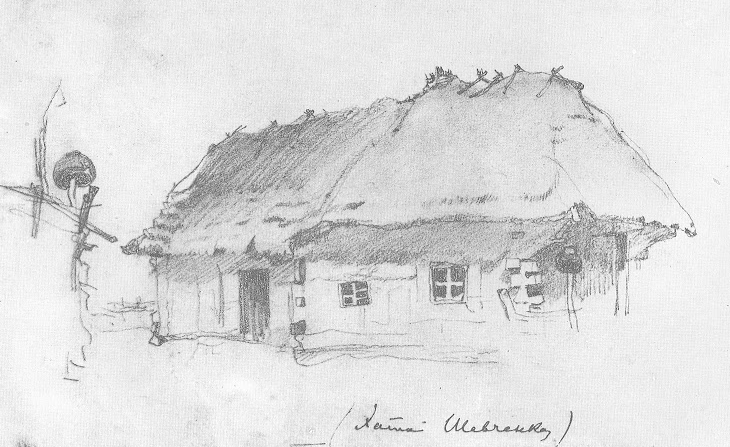 (Хата Шевченка)